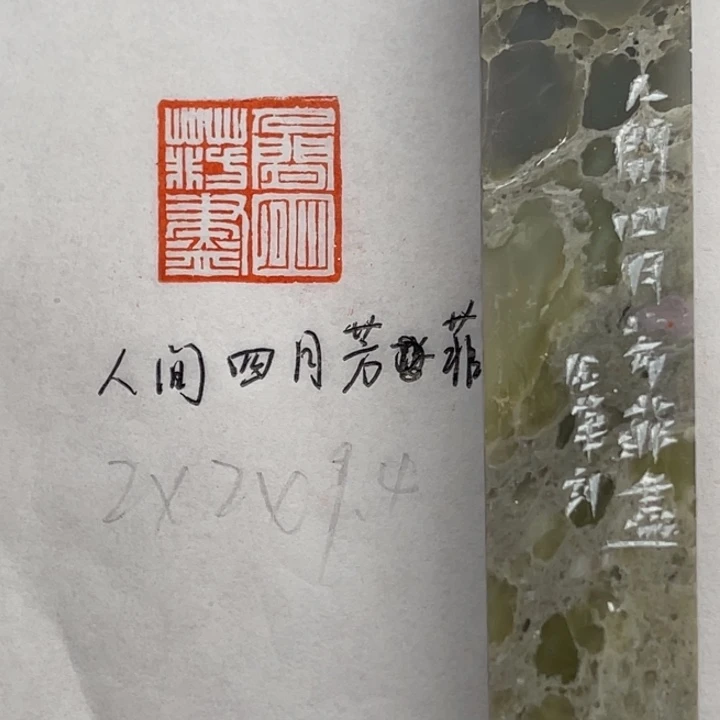 人間四月
芳菲盡
人间四月芳菲
2X2X9.4
人間四月芳菲盡
刻